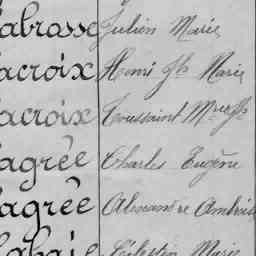 abrasse Julien Marie
acroix Henri Jh Marie
acroix Toussaint Mie Jh
agrée Charles Eugène
agrée Alexandre Ambroise
Célestin Marie